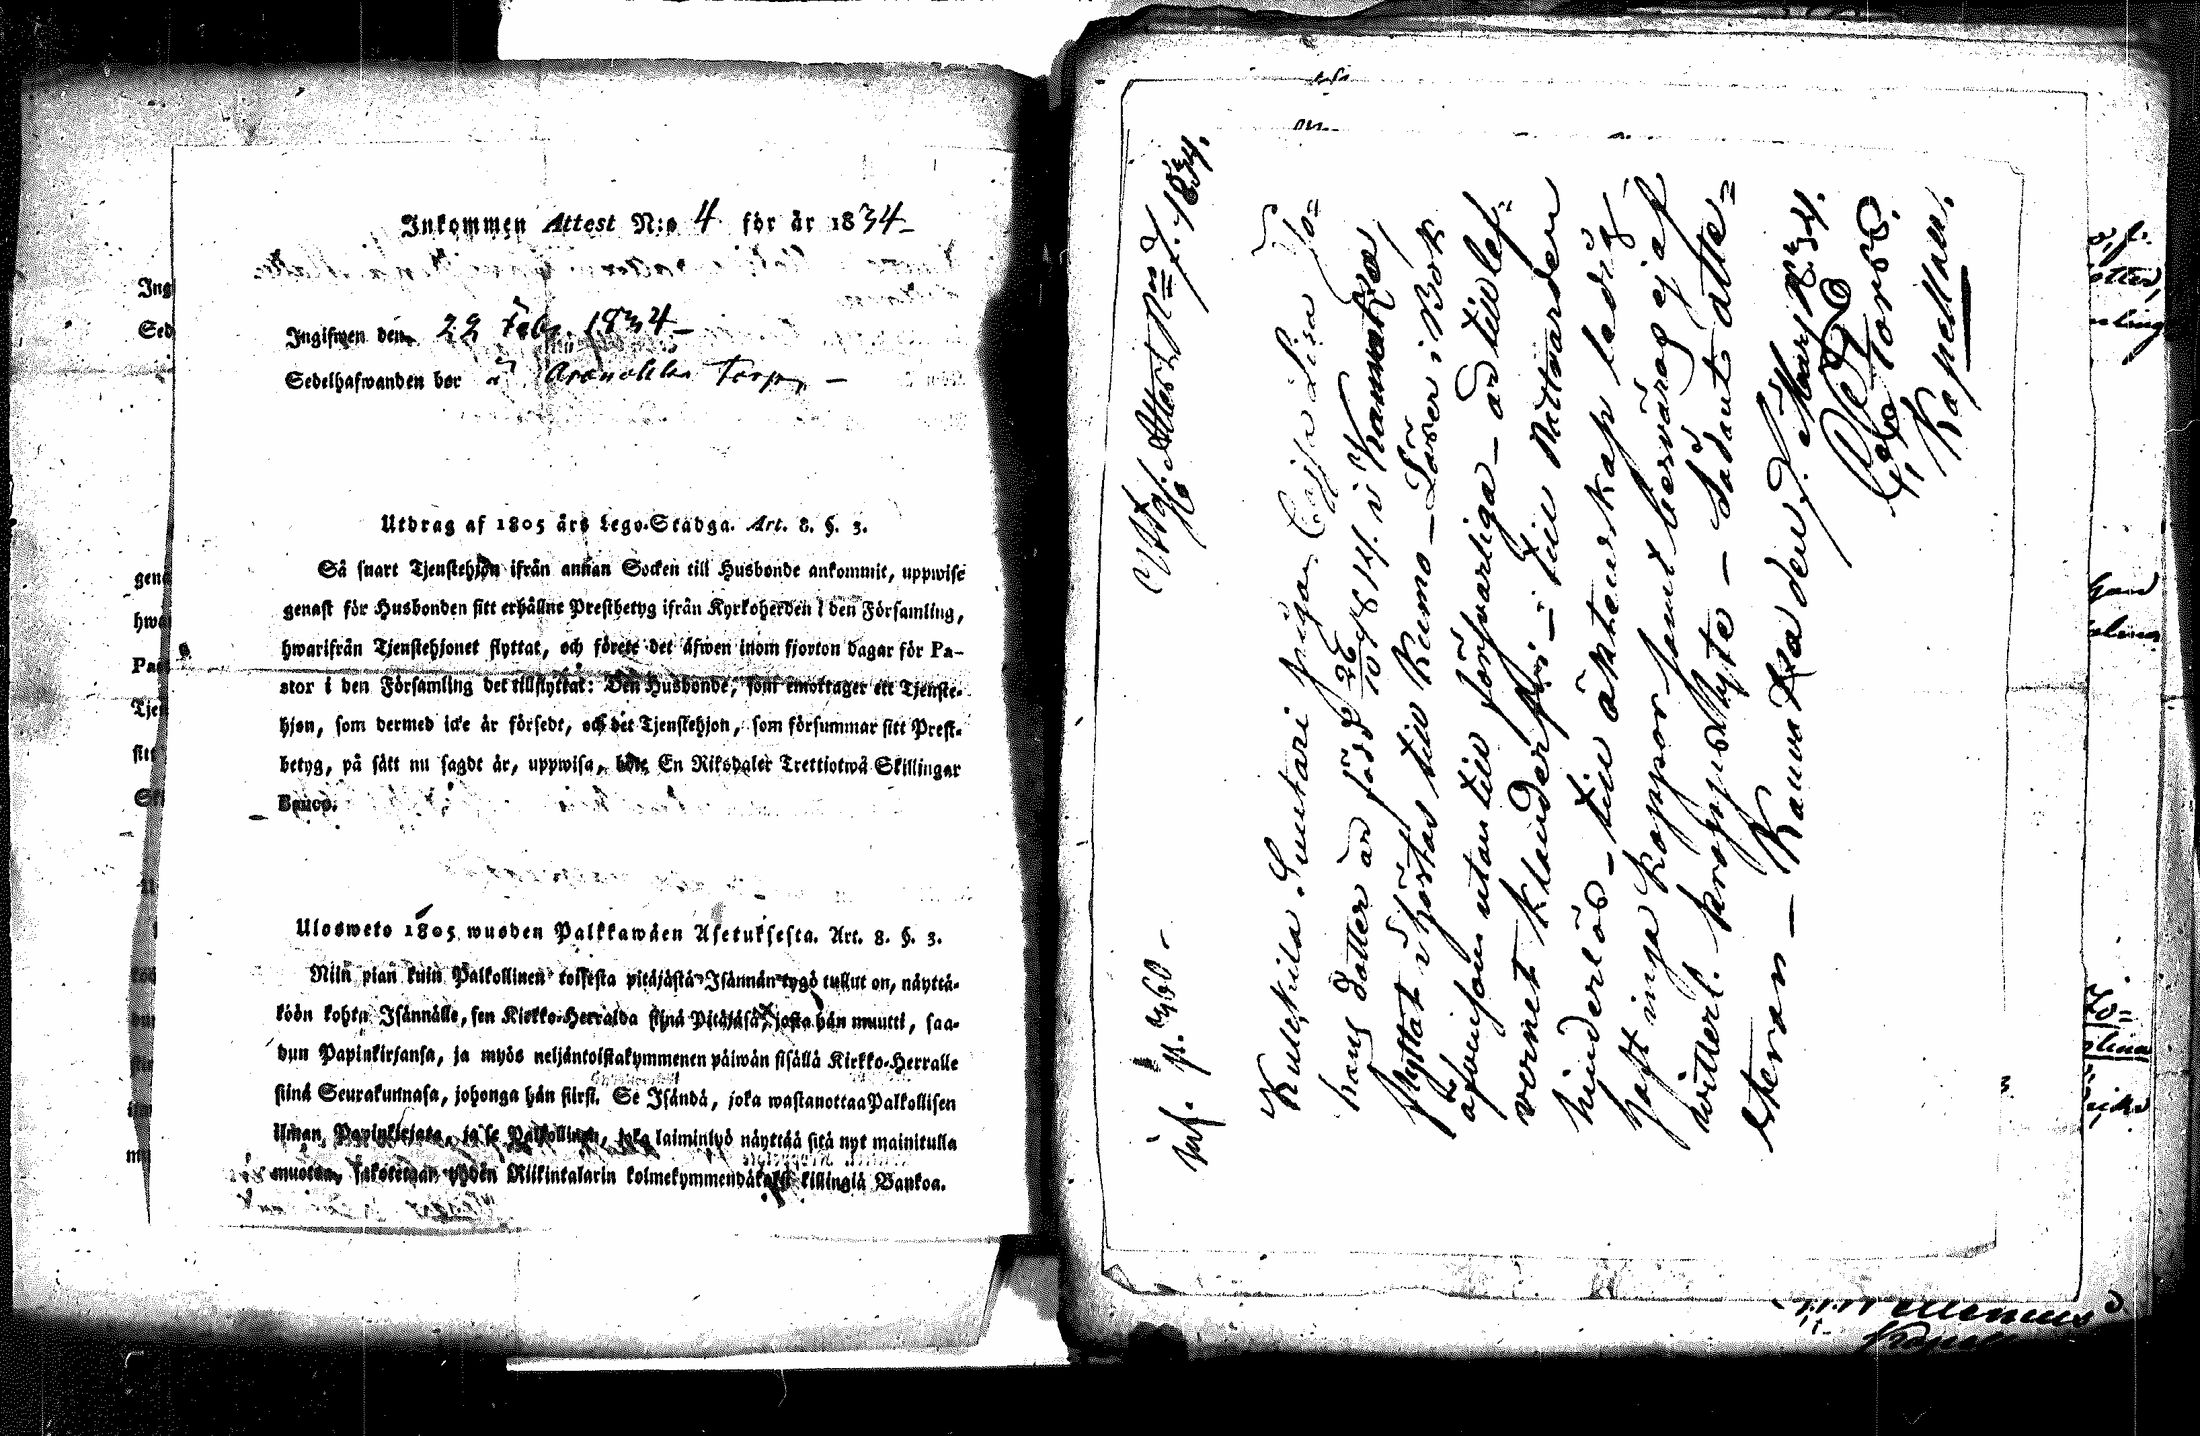 Inkommen Attest N:o 4 för år 1834
Ingifwen den 22 Feb. 1834
Sedelhafwanden bor å Torp
Utdrag af 1805 års Lego-Stadga. Art. 8. §. 3.
Så snart Tjenstehjon ifrån annan Socken till Husbonde ankommit, uppwise
genast för Husbonden sitt erhållne Prestbetyg ifrån Kyrkoherden i den Församling,
hwarifrån Tjenstehjonet flyttat, och förete det äfwen inom fjorton dagar för Pa-
stor i den Församling det tillflyttat: Den Husbonde, som emottager ett Tjenste-
hjon, som dermed icke är försedt, och det Tjenstehjon, som försummar sitt Prest-
betyg, på sätt nu sagdt är, uppwisa, böte En Riksdaler Trettiotwå Skillingar
Banco.
Ulosweto 1805 wuoden Palkkawäen Asetuksesta. Art. 8. §. 3.
Niin pian kuin Palkollinen toisesta pitäjästä Isännän tygö tullut on, näyttä-
köön kohta Isännälle, sen Kirkko-Herralda siinä Pitäjäsä, josta hän muutti, saa-
dun Papinkirjansa, ja myös neljäntoistakymmenen päiwän sisällä Kirkko-Herralle
siinä Seurakunnasa, johonga hän siirsi. Se Isändä, joka wastanottaa Palkollisen
ilman Papinkirjata, ja se Palkollinen, joka laiminlyö näyttää sitä nyt mainitulla
muotoa, sakotetaan yhden Riikintalarin kolmekymmendäkaksi killingiä Bankoa.
Attest N:o 7. 1834.
inf. p. 360
Kulskila Suutari pigan Cajsa Lisa Jo=
hans dotter är född 26/10 1814 i Kauvatsa
flyttat i höstas till Kumo – Läser i Bok
äfvensom utantill försvarliga – är till lef=
vernet klanderfri – till Nattvarden
hinderlös – till äktenskap ledig
haft inga koppor samt besväras ej af
witterl. kroppslyte – Sådant atte=
steras – Kauvatsa den 7 Mars 1834.
Kapellan.